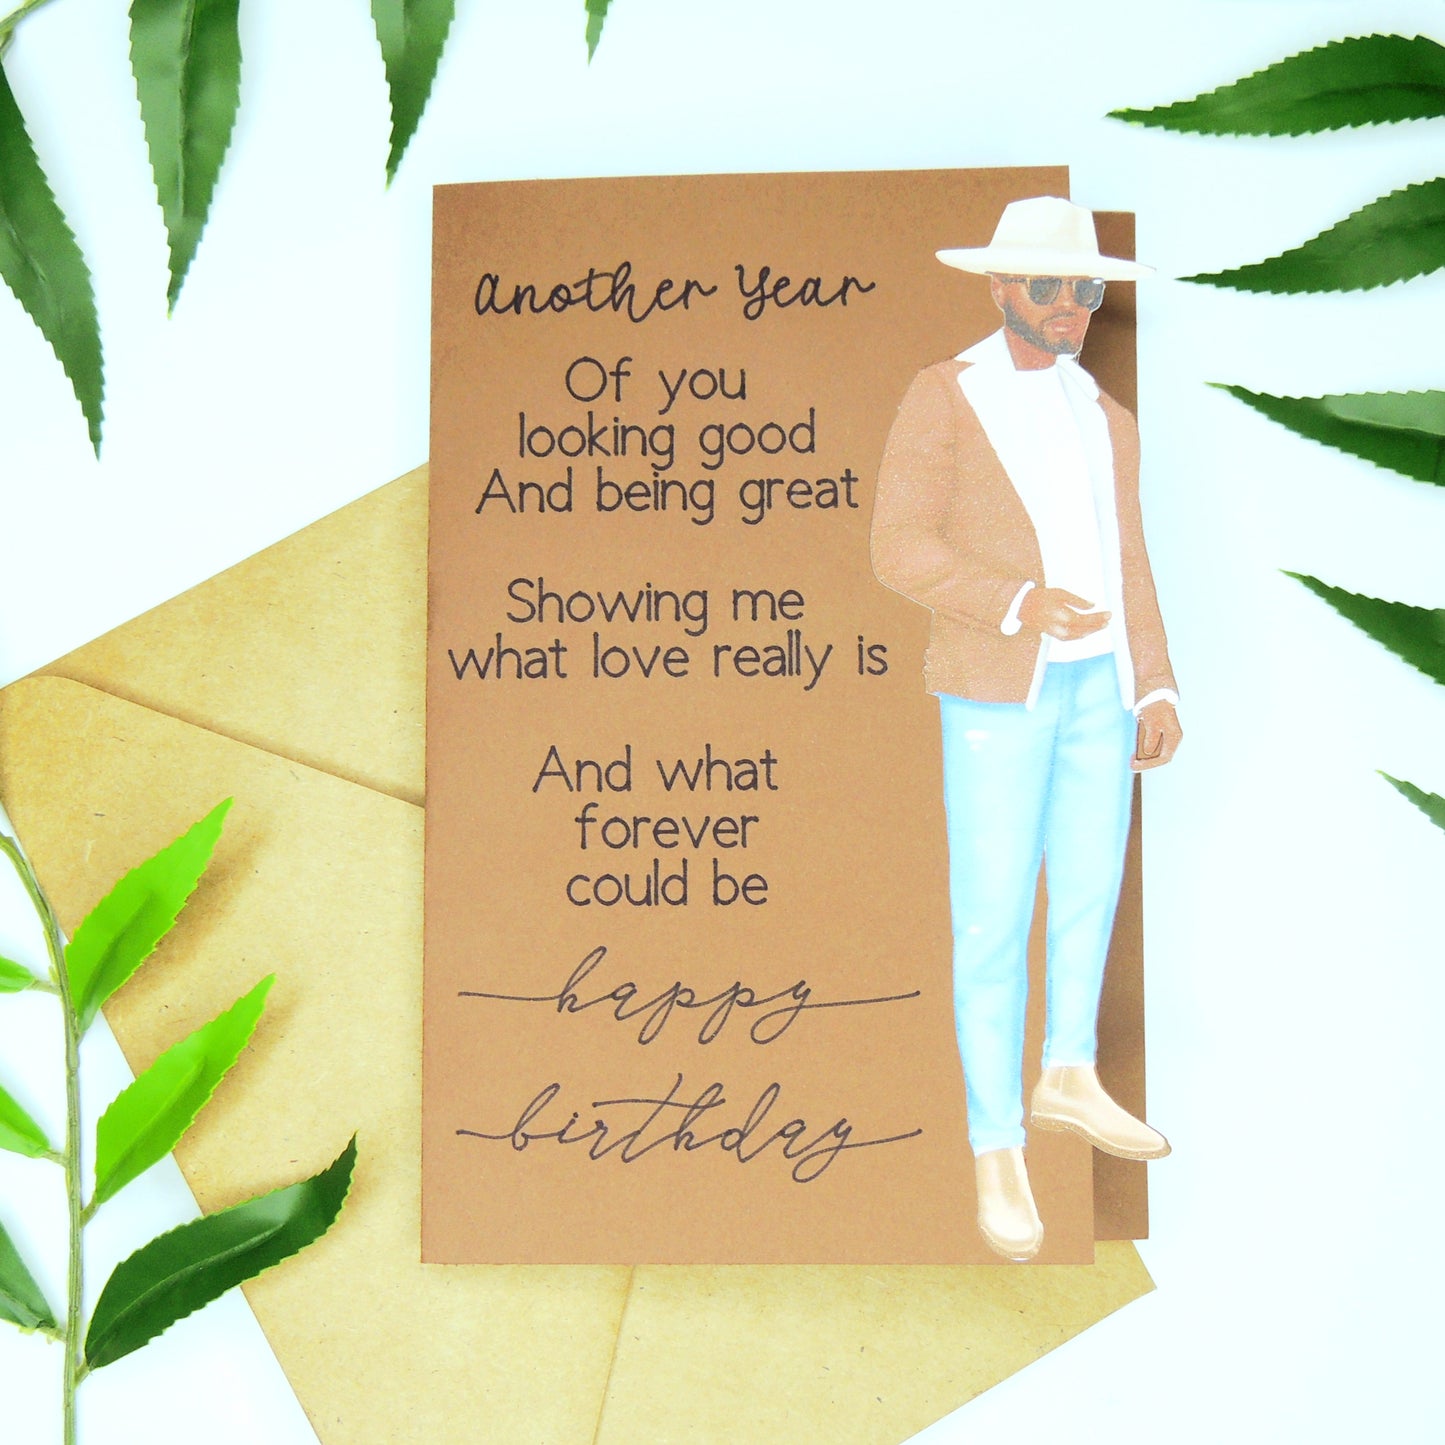 Another Year
Of you
looking good
And being great
Showing me
what love really is
And what
forever
could be
happy
birthday